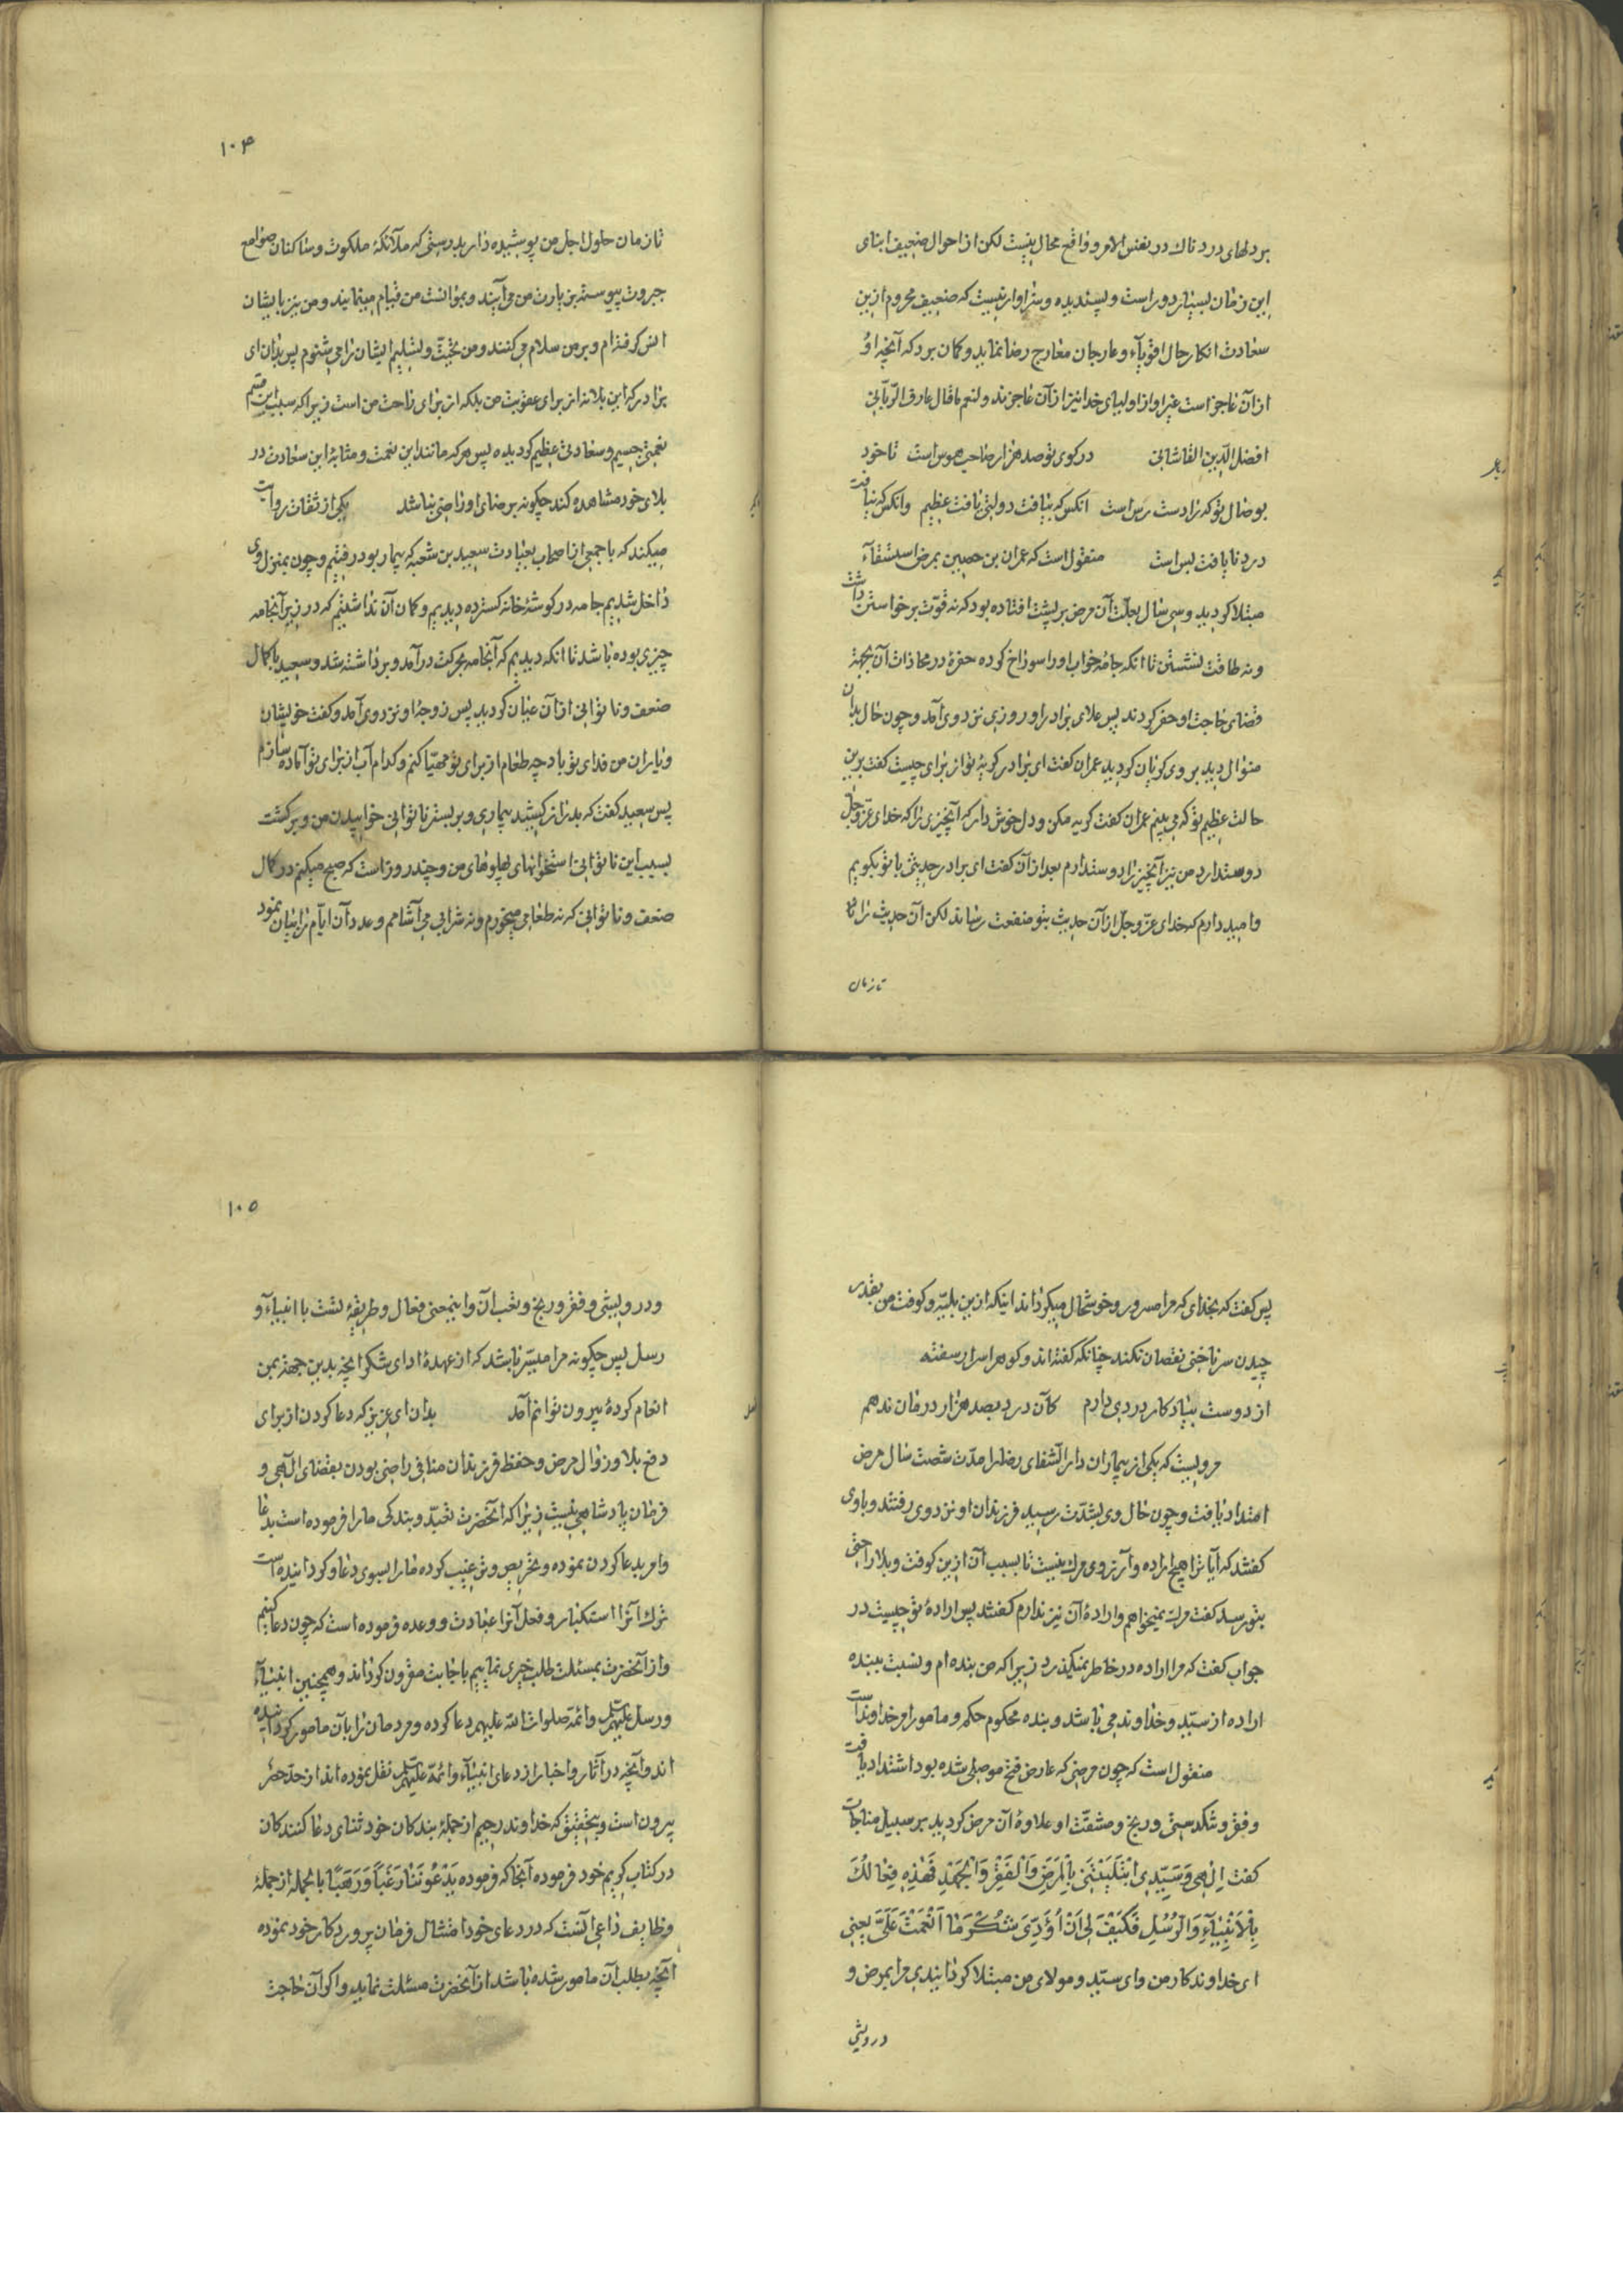 بر دلهای دردناک در نفس الامر و واقع محال نیست لکن از احوال ضعیف ابنای
این زمان بسیار دور است و پسندیده و سزاوار نیست که ضعیف محروم ازین
سعادت انکار حال اقویآء و عارجان معارج رضا نماید و کمان برد که آنچه او
از آن عاجز است غیر او از اولیای خدا نیز از آن عاجزند و لنعم ما قال عارف الربانی
افضل الدین القاشانی در کوی تو صد هزار صاحب هوس است تا خود
بوصال تو که را دست رس است آنکس که بیافت دولتی یافت عظیم وانکس که نیافت
درد نایافت بس است منقول است که عمران بن حصین بمرض استسقآء
مبتلا کردید و سی سال بعلت آن مرض بر پشت افتاده بود که نه قوّت برخواستن داشت
و نه طاقت نشستن تا انکه جامهٔ خواب او را سوراخ کرده حفرهٔ در محاذات آن بجهة
قضای حاجت او حفر کردند پس علای برادر او روزی نزد وی آمد و چون حال بدان
منوال دید بروی کریان کردید عمران کفت ای برادر کریهٔ تو از برای چیست کفت برین
حالت عظیم تو که می بینم عمران کفت کریه مکن و دل خوش دار که آنچیزی را که خدای عزّ و جلّ
دوستدارد من نیز آنچیز را دوستدارم بعد از آن کفت ای برادر حدیثی با تو بکویم
و امید دارم که خدای عزّ و جلّ از آن حدیث بتو منفعت رساند لکن آن حدیث را تا
تا زمان
۱۰۴
تا زمان حلول اجل من پوشیده دار بدرستی که ملآئکهٔ ملکوت و ساکنان صوامع
جبروت پیوسته بزیارت من می آیند و بموانست من قیام مینمایند و من نیز بایشان
انس کرفته ام و بر من سلام می کنند و من تحیّت و تسلیم ایشان را می شنوم پس بدان ای
برادر که این بلا نه از برای عقوبت من بلکه از برای راحت من است زیرا که سبب این قسم
نعمتی جسیم و سعادتی عظیم کردیده پس هر که مانند این نعمت و مثابهٔ این سعادت در
بلای خود مشاهده کند چکونه برضای او راضی نباشد یکی از ثقات روایت
میکند که با جمعی از اصحاب بعیادت سعید بن شعبه که بیمار بود رفتیم و چون بمنزل وی
داخل شدیم جامه در کوشهٔ خانه کسترده دیدیم و کمان آن نداشتیم که در زیر آنجامه
چیزی بوده باشد تا انکه دیدیم که آنجامه بحرکت درآمد و برداشته شد و سعید با کمال
ضعف و ناتوانی از آن عیان کردید پس زوجهٔ او نزد وی آمد و کفت خویشان
و یاران من فدای تو باد چه طعام از برای تو مهیّا کنم و کدام آب از برای تو آماده سازم
پس سعید کفت که بدراز کشید بیماری و بر بستر ناتوانی خوابیدن من و برکشت
بسبب این ناتوانی استخوانهای پهلوهای من و چند روز است که صبح میکنم در کمال
ضعف و ناتوانی که نه طعامی میخورم و نه شرابی می آشامم و عدد آن ایّام را بیان نمود
پس کفت که بخدای که مرا مسرور و خوشحال میکرداند اینکه ازین بلیّه و کوفت من بقدر
چیدن سر ناخنی نقصان نکند چنانکه کفته اند و کوهر اسرار سفته
از دوست بیادکار دردی دارم کآن درد بصد هزار درمان ندهم
مرویست که یکی از بیماران دار الشفای رضا را مدّت شصت سال مرض
امتداد یافت و چون حال وی بشدّت رسید فرزندان او نزد وی رفتند و با وی
کفتند که آیا ترا هیچ اراده و آرزوی مرک نیست تا بسبب آن ازین کوفت و بلا راحتی
بتو رسد کفت مرک نمیخواهم و ارادهٔ آن نیز ندارم کفتند پس ارادهٔ تو چیست در
جواب کفت که مرا اراده در خاطر نمیکذرد زیرا که من بنده ام و نسبت ببنده
اراده از سیّد و خداوند می باشد و بنده محکوم حکم و مامور امر خداوند است
منقول است که چون مرضی که عارض فتح موصلی شده بود اشتداد یافت
و فقر و تنکدستی و رنج و مشقّت او علاوهٔ آن مرض کردید بر سبیل مناجات
کفت اِلٰهی وَسَیِّدی اِبْتَلَیْتَنی بِالْمَرَضِ وَالْفَقْرِ وَالْجَهْدِ فَهٰذِهِ فِعٰالُکَ
بِالْاَنْبِیٰآءِ وَالرُّسُلِ فَکَیْفَ لی اَنْ اُؤَدِّیَ شُکْرَ مٰا اَنْعَمْتَ عَلَیَّ یعنی
ای خداوندکار من و ای سیّد و مولای من مبتلا کردانیدی مرا بمرض و
درویشی
۱۰۵
و درویشی و فقر و رنج و تعب آن و اینمعنی فعال و طریقهٔ تست با انبیآء و
رسل پس چکونه مرا میسّر باشد که از عهدهٔ ادای شکر انچه بدین جهة بمن
انعام کردهٔ بیرون توانم آمد بدان ای عزیز که دعا کردن از برای
دفع بلا و زوال مرض و حفظ فرزندان منافی راضی بودن بقضای الٓهی و
فرمان پادشاهی نیست زیرا که انحضرت تعبّد و بندکی ما را فرموده است بدعا
و امر بدعا کردن نموده و تحریص و ترغیب کرده ما را بسوی دعا و کردانیده است
ترک آنرا استکبار و فعل آنرا عبادت و وعده فرموده است که چون دعا کنیم
و از آنحضرت بمسئلت طلب چیزی نماییم باجابت مقرون کرداند و همچنین انبیآء
و رسل علیهم السلم و ائمّه صلوات الله علیهم دعا کرده و مردمان را بآن مامور کردانیده
اند و آنچه در آثار و اخبار از دعای انبیآء و ائمّه علیهم السلم نقل نموده اند از حدّ حصر
بیرون است و بتحقیق که خداوند رحیم از جملهٔ بندکان خود ثنای دعا کنندکان
در کتاب کریم خود فرموده آنجا که فرموده یَدْعُونَنٰا رَغَباً وَرَهَباً بالجمله از جملهٔ
وظایف داعی آنست که در دعای خود امتثال فرمان پروردکار خود نموده
آنچه بطلب آن مامور شده باشد از آنحضرت مسئلت نماید و اکر آن حاجت